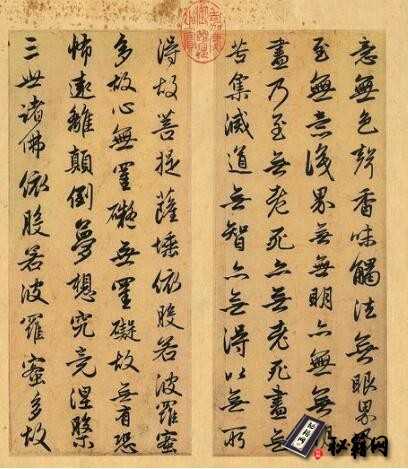 嘉慶御覽之寶
意無色聲香味觸法無眼界乃
至無意識界無無明亦無無明
盡乃至無老死亦無老死盡無
苦集滅道無智亦無得以無所
得故菩提薩埵依般若波羅蜜
多故心無罣礙無罣礙故無有恐
怖遠離顛倒夢想究竟涅槃
三世諸佛依般若波羅蜜多故
秘籍网